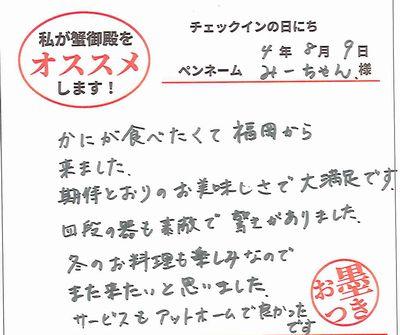 私が蟹御殿を
オススメ
します！
チェックインの日にち
4年8月9日
ペンネーム みーちゃん 様
かにが食べたくて福岡から
来ました.
期待とおりのお美味しさで大満足です
回段の器も素敵で驚きがありました.
冬のお料理も楽しみなので
また来たいと思いました.
サービスもアットホームで良かった
です
お墨つき